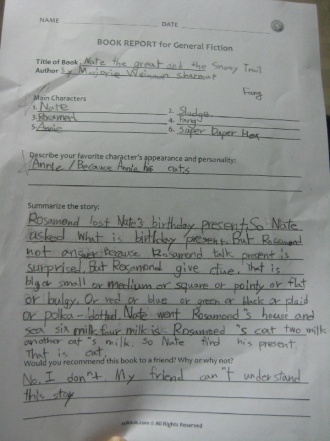 NAME DATE
BOOK REPORT for General Fiction
Title of Book Nate the great and the Snowy Trail
Author by Marjorie Weinman sharmat
Fang
Main Characters
1. Nate 2. Sludge
3. Rosamed 4. Fang
5. Annie 6. Super Duper Hex
Describe your favorite character's appearance and personality:
Annie / Because Annie has cats
Summarize the story:
Rosamond lost Nate's birthday present. So Nate
asked what is birthday present. But Rosamond
not answer. Because Rosamond talk present is
surprised. But Rosamond give clue. That is
big or small or medium or square or pointy or flat
or bulgy. Or red or blue or green or black or plaid
or polka-dotted. Nate went Rosamond's house and
sea six milk four milk is Rosamoned's cat two milk
another cat's milk. So Nate find his present.
That is cat.
Would you recommend this book to a friend? Why or why not?
No. I don"t. My friend can"t understand
this stoy
All Rights Reserved